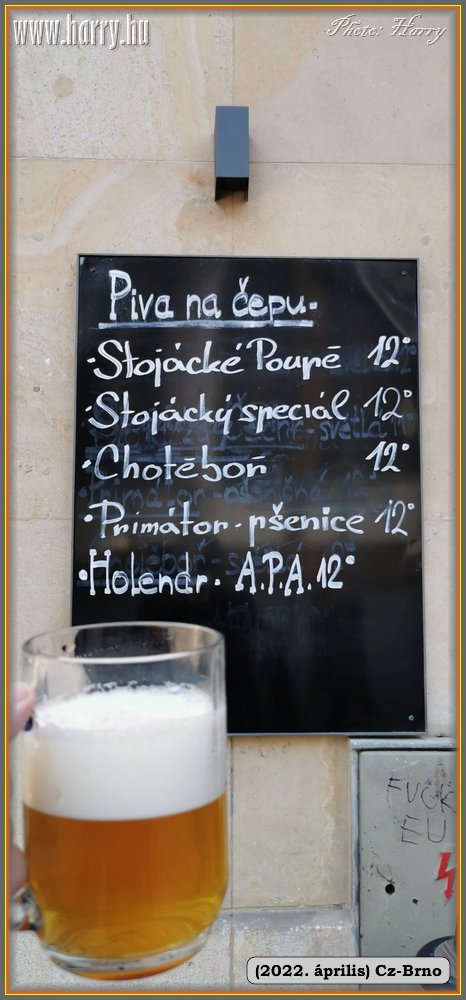 www.harry.hu
Photo: Harry
Piva na čepu-
·Stojácké Poupě 12°
·Stojácký speciál 12°
·Chotěboř 12°
·Primátor-pšenice 12°
·Holendr· A.P.A. 12°
FUCK
EU
(2022. április) Cz-Brno